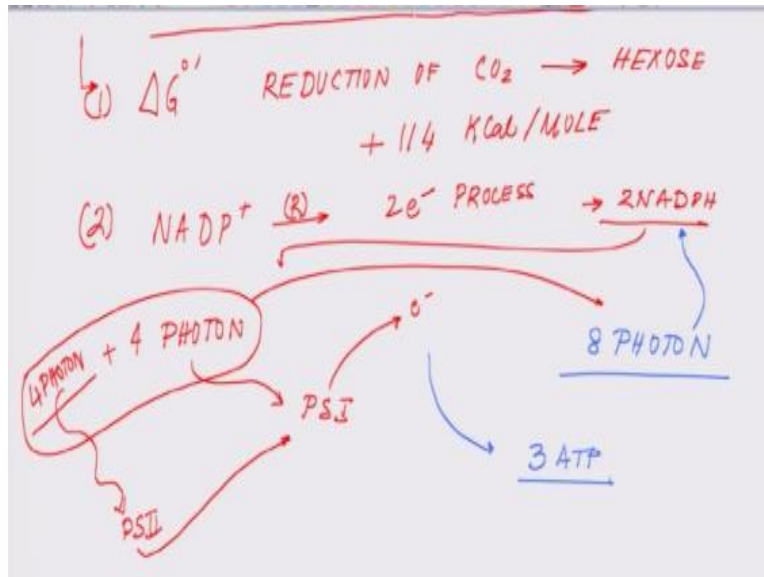 (1) ΔG°' REDUCTION OF CO₂ → HEXOSE
+ 114 KCal/MOLE
(2) NADP⁺ (R)→ 2e⁻ PROCESS → 2NADPH
4 PHOTON + 4 PHOTON
e⁻
8 PHOTON
PSI
3 ATP
PSII